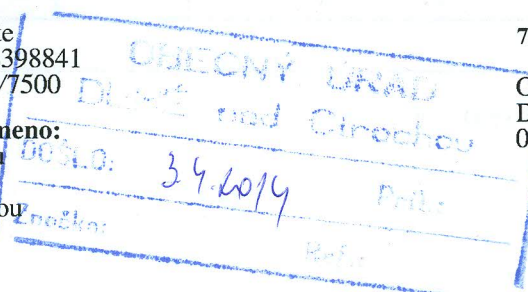 te 7
398841
/7500
meno:
OBECNÝ ÚRAD
DLHÉ nad Cirochou
DOŠLO: 3.4.2014 Príl.:
Značka: Ref.:
bu